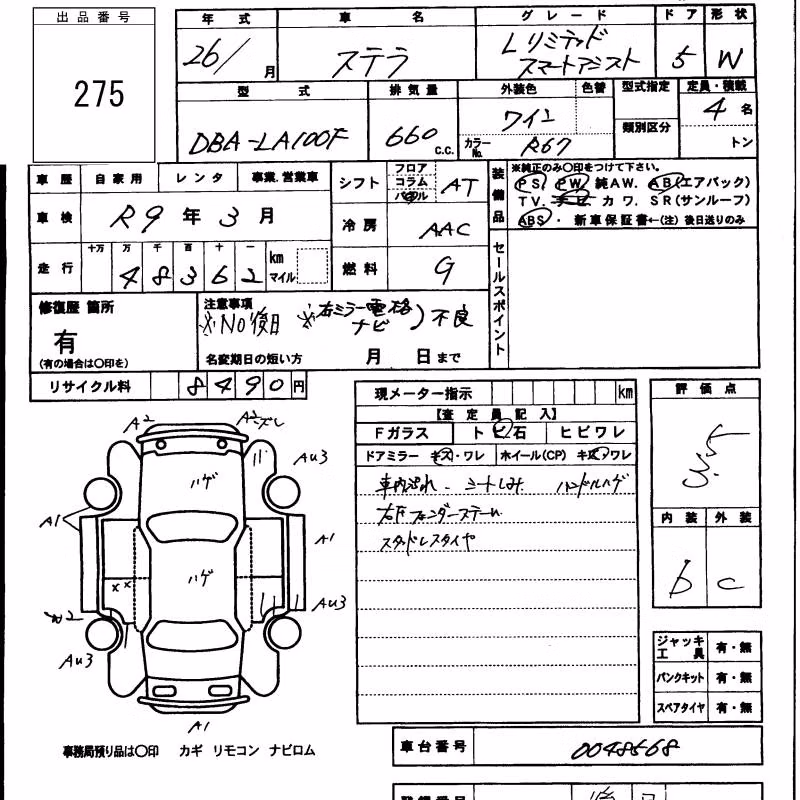 出品番号
275
年式 車名 グレード ドア 形状
26/ 月 ステラ Lリミテッド スマートアシスト 5 W
型式 排気量 外装色 色替 型式指定 定員・積載
DBA-LA100F 660 c.c. ワイン 類別区分 4 名
カラーNo. R67 トン
車歴 自家用 レンタ 事業.営業車 シフト フロア コラム パネル AT
装備品 ※純正のみ〇印をつけて下さい。
PS. PW. 純AW. AB(エアバック)
TV. ナビ カワ. SR(サンルーフ)
ABS・ 新車保証書←(注) 後日送りのみ
車検 R9 年 3 月 冷房 AAC
走行 十万 万 千 百 十 一 km マイル 燃料 G
4 8 3 6 2
セールスポイント
修復歴 箇所 注意事項
有 ※No後日 ※右ミラー電格 ナビ )不良
(有の場合は〇印を) 名変期日の短い方 月 日まで
リサイクル料 8490円
現メーター指示 km 評価点
【査定員記入】
Fガラス トビ石 ヒビワレ
ドアミラー キズ・ワレ ホイール(CP) キズ・ワレ
3.5
車内汚れ シートしみ ハンドルハゲ
スタッドレスタイヤ
内装 外装
b c
A2
ハゲ
Au3
A1
A1
ハゲ
xx
Au3
Au3
A1
ジャッキ工具 有・無
パンクキット 有・無
スペアタイヤ 有・無
事務局預り品は〇印 カギ リモコン ナビロム
車台番号 0048568